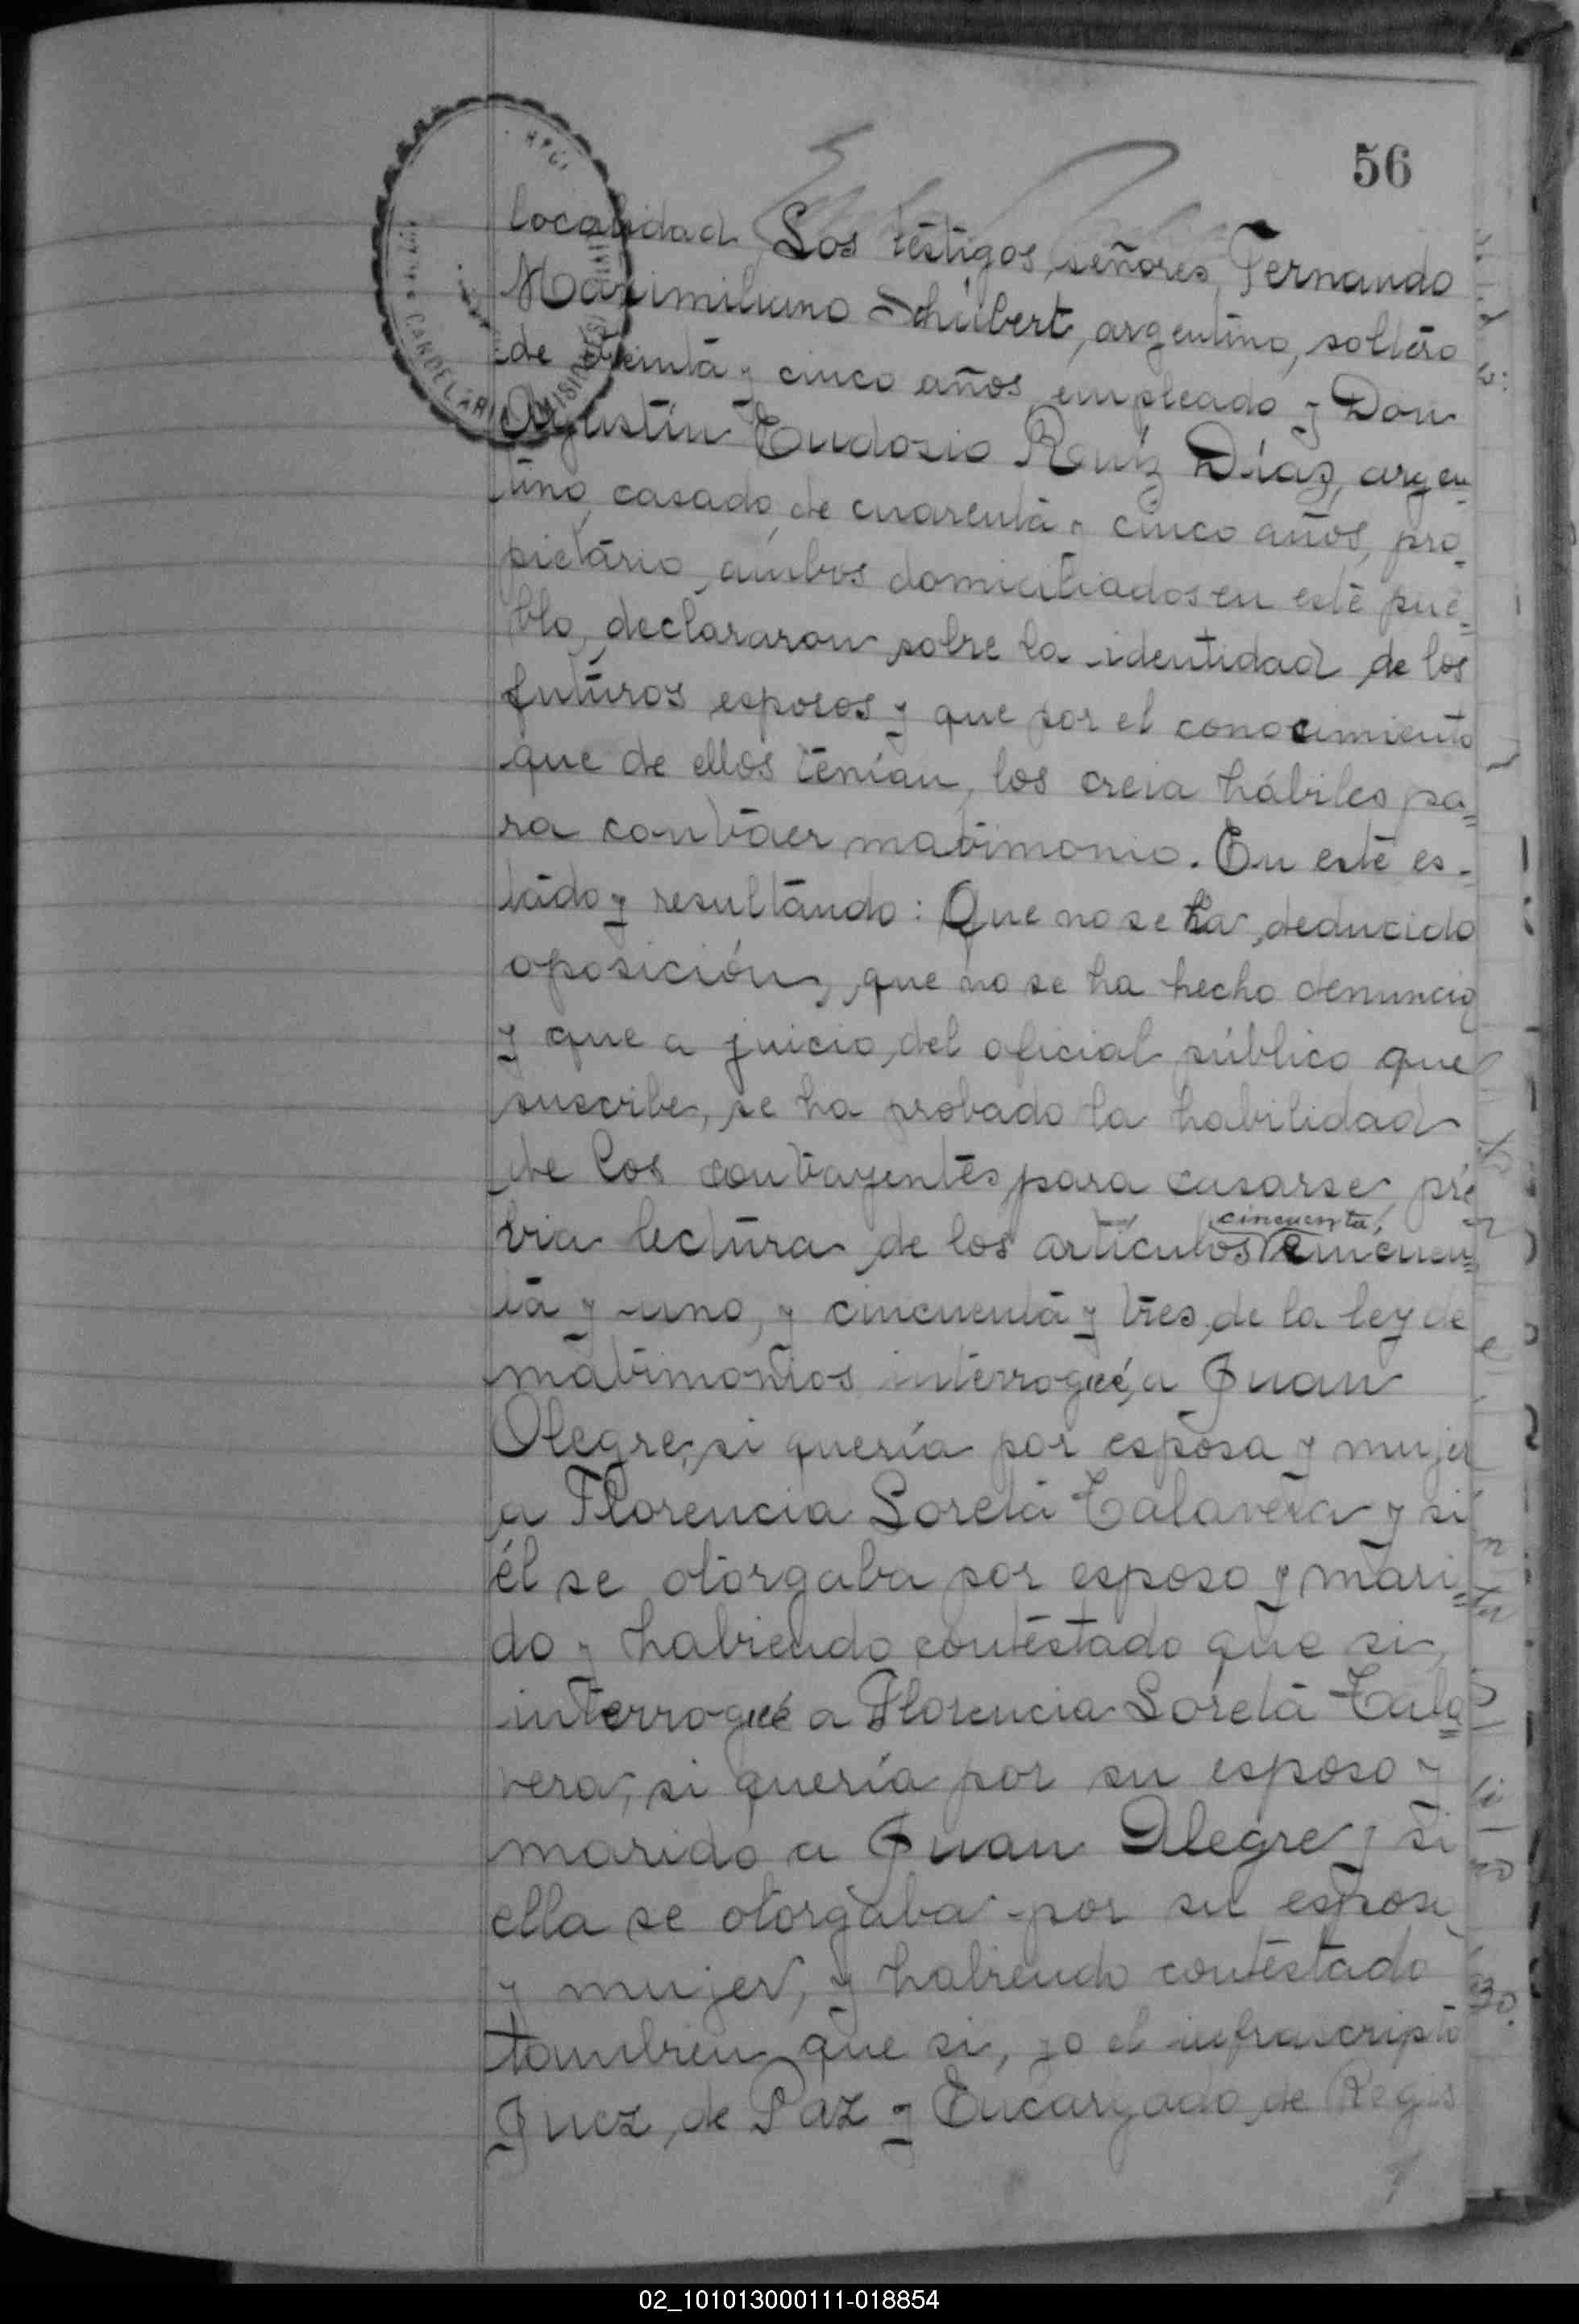 56
localidad. Los testigos, señores, Fernando
Maximiliano Schubert, argentino, soltero
de treinta y cinco años, empleado y Don
Agustín Eudosio Ruíz Díaz, argen=
tino, casado, de cuarenta y cinco años, pro-
pietario, ambos domiciliados en este pue=
blo, declararon sobre la identidad de los
futuros esposos y que por el conocimiento
que de ellos tenían, los creia hábiles pa=
ra contraer matrimonio. En este es-
tado y resultando: Que no se ha deducido
oposición, que no se ha hecho denuncia
y que a juicio del oficial público que
suscribe, se ha probado la habilidad
de los contrayentes para casarse, pré
cincuenta,
via lectura de los artículos cincuen=
ta y uno, y cincuenta y tres, de la ley de
matrimonios interrogué, a Juan
Alegre, si quería por esposa y mujer
a Florencia Loreta Talavera y si
él se otorgaba por esposo y mari=
do y habiendo contestado que si,
interrogué a Florencia Loreta Tala=
vera, si quería por su esposo y
marido a Juan Alegre y si
ella se otorgaba por su esposa
y mujer, y habiendo contestado
tambien que si, yo el infrascripto
Juez de Paz y Encargado de Regis
CANDELARIA (MISIONES)
02_101013000111-018854